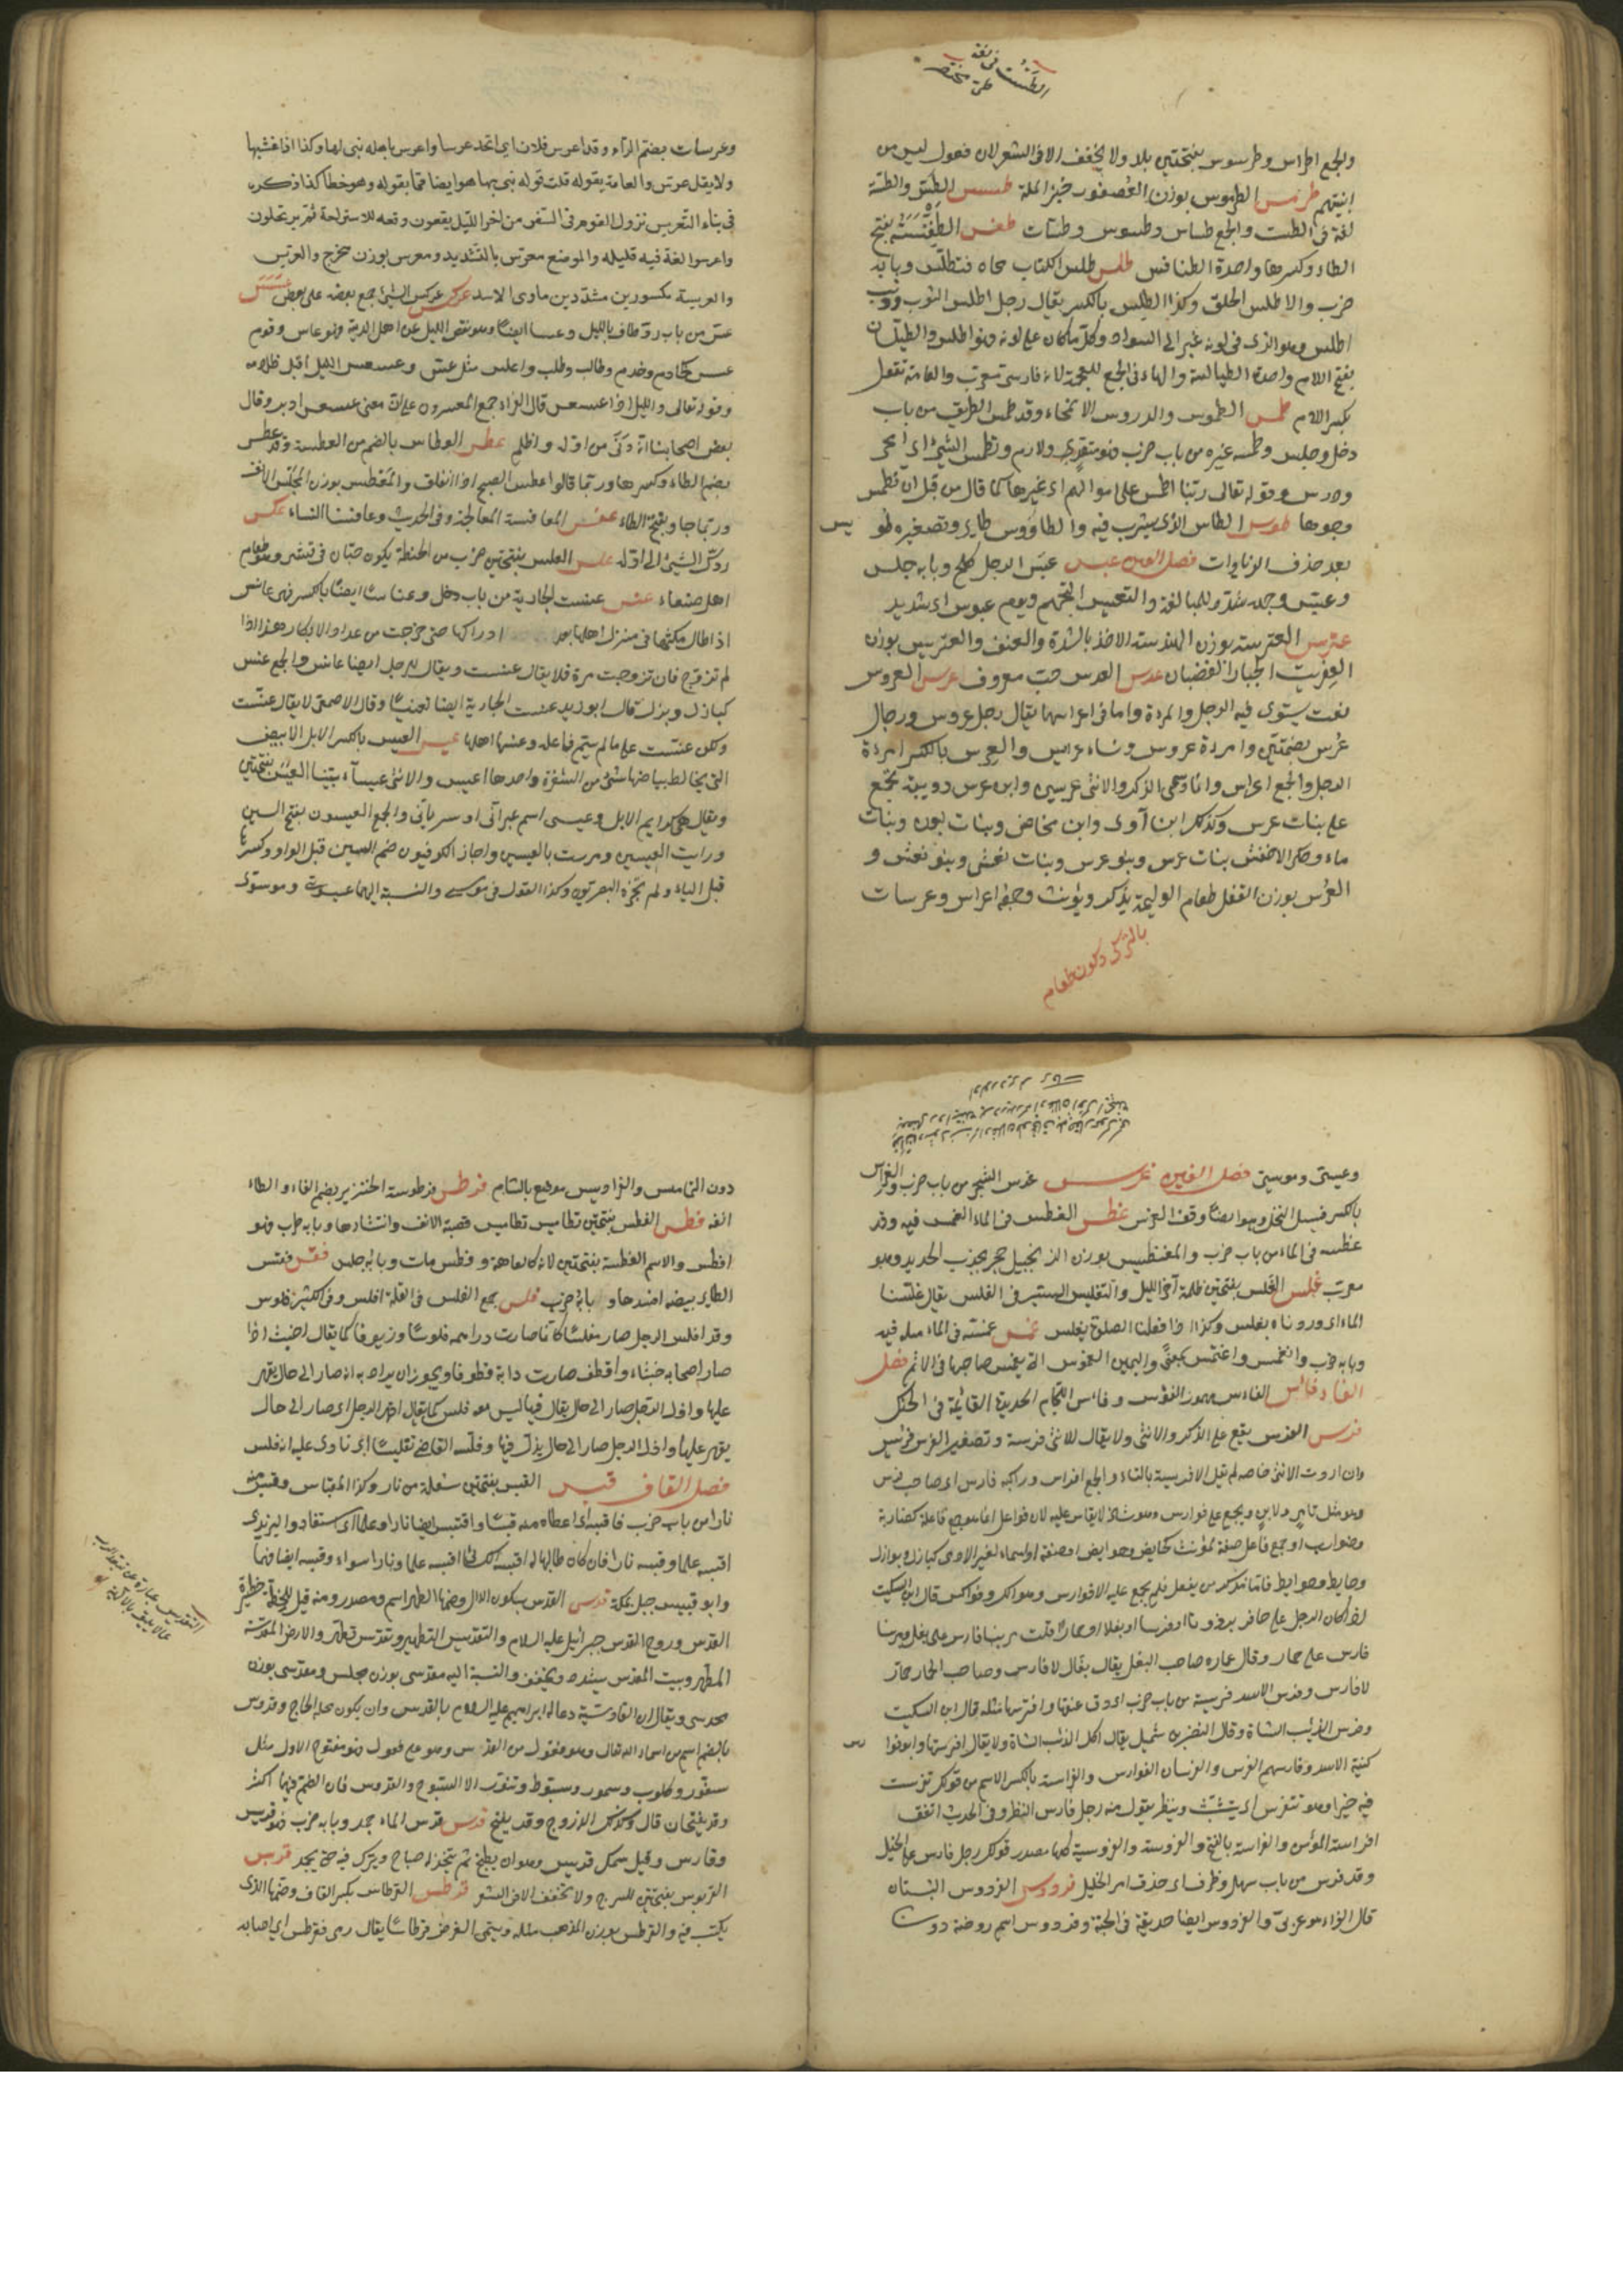 والجمع اطراس وطرسوس بفتحتين بلد ولا يخفف الا فى الشعر لان فعول ليس من
ابنيتهم طرمس الطرموس بوزن العصفور خبز الملة طسس الطس والطسة
لغة فى الطست والجمع طساس وطسوس وطسات طفس الطنفسة بفتح
الطاء وكسرها واحدة الطنافس طلس طلس الكتاب محاه فتطلس وبابه
ضرب والاطلس الخلق وكذا الطلس بالكسر يقال رجل اطلس الثوب وذئب
اطلس وهو الذى فى لونه غبرة الى السواد وكل ما كان على لونه فهو اطلس والطيلسان
بفتح اللام واحدة الطيالسة والهاء فى الجمع للعجمة لانه فارسى معرب والعامة تقول
بكسر اللام طمس الطموس والدروس الانمحاء وقد طمس الطريق من باب
دخل وجلس وطمسه غيره من باب ضرب فهو متعد ولازم وتطمس الشئ اى امحى
ودرس وقوله تعالى ربنا اطمس على اموالهم اى غيرها كما قال من قبل ان نطمس
وجوها طوس الطاس الذى يشرب فيه والطاووس طاير وتصغيره طويس
بعد حذف الزيادات فصل العين عبس عبس الرجل كلح وبابه جلس
وعبس وجهه شدد للمبالغة والتعبس التجهم ويوم عبوس اى شديد
عترس العترسة بوزن الهندسة الاخذ بالشدة والعنف والعتريس بوزن
العفريت الجبار الغضبان عدس العدس حب معروف عرس العروس
نعت يستوى فيه الرجل والمراة ما داما فى اعراسهما يقال رجل عروس ورجال
عرس بضمتين وامرءة عروس ونساء عرايس والعرس بالكسر امرءة
الرجل والجمع اعراس وابن عرس دويبة يجمع
على بنات عرس وكذلك ابن آوى وابن مخاض وبنات لبون وبنات
ماء وحكى الاخفش بنات عرس وبنو عرس وبنات نعش وبنو نعش و
العرس بوزن القفل طعام الوليمة يذكر ويؤنث وجمعه اعراس وعرسات
وعرسات بضم الراء وقد اعرس فلان اى اتخذ عرسا واعرس باهله بنى لها وكذا اذا غشيها
ولا يقل عرس والعامة تقوله قلت قوله بنى بها هو ايضا مما يقوله وهو خطا كذا ذكره
فى بناء التعريس نزول القوم فى السفر من اخر الليل يقعون وقعة للاستراحة ثم يرتحلون
واعرسوا لغة فيه قليلة والموضع معرس بالتشديد ومعرس بوزن مخرج والعريس
والعريسة مكسورين مشددين ماوى الاسد عركس عركس الشئ جمع بعضه على بعض عسس
عس من باب رد طاف بالليل وعسسا ايضا وهو نفض الليل عن اهل الريبة فهو عاس وقوم
عسس كخادم وخدم وطالب وطلب واعتس مثل عس وعسعس الليل اقبل ظلامه
وقوله تعالى والليل اذا عسعس قال الفراء اجمع المفسرون على ان معنى عسعس ادبر وقال
بعض اصحابنا انه دنى من اوله واظلم عطس العطاس بالضم من العطسة وقد عطس
بضم الطاء وكسرها وربما قالوا عطس الصبح اذا انفلق والمعطس بوزن المجلس الانف
وربما جا وبفتح الطاء عفس المعافسة المعالجة وفى الحديث وعافسنا النساء عكس
ردك الشئ الى اوله علس العلس بفتحتين ضرب من الحنطة يكون حبتان فى قشر وهو طعام
اهل صنعاء عنس عنست الجارية من باب دخل وعناسا ايضا بالكسر فهى عانس
اذا طال مكثها فى منزل اهلها بعد ادراكها حتى خرجت من عداد الابكار هذا اذا
لم تتزوج فان تزوجت مرة فلا يقال عنست ويقال للرجل ايضا عانس والجمع عنس
كبازل وبزل قال ابو زيد عنست الجارية ايضا تعنيسا وقال الاصمعى لا يقال عنست
ولكن عنست على ما لم يسم فاعله وعنسها اهلها عيس العيس بالكسر الابل الابيض
التى يخالط بياضها شئ من الشقرة واحدها اعيس والانثى عيسآء بينا العيس بفتحتين
ويقال هى كرايم الابل وعيسى اسم عبرانى او سريانى والجمع العيسون بفتح السين
ورايت العيسين ومررت بالعيسين واجاز الكوفيون ضم السين قبل الواو وكسرها
قبل الياء ولم يجزه البصريون وكذا القول فى موسى والنسبة اليهما عيسوى وموسوى
وعيسى وموسى فصل الغين غرس غرس الشجر من باب ضرب والغراس
بالكسر فسيل النخل وهو ايضا وقت الغرس غطس الغطس فى الماء الغمس فيه وقد
غطسه فى الماء من باب ضرب والمغنطيس بوزن الزنجبيل حجر يجذب الحديد وهو
معرب غلس الغلس بفتحتين ظلمة آخر الليل والتغليس السير فى الغلس يقال غلسنا
الماء اى وردناه بغلس وكذا اذا فعلنا الصلوة بغلس غمس غمسه فى الماء مقله فيه
وبابه ضرب وانغمس واغتمس بمعنى واليمين الغموس التى تغمس صاحبها فى الاثم فصل
الفاء فأس الفاس مهموز الفؤس وفاس اللجام الحديدة القائمة فى الحنك
فرس الفرس يقع على الذكر والانثى ولا يقال للانثى فرسة وتصغير الفرس فريس
وان اردت الانثى خاصة لم تقل الا فريسة بالتاء والجمع افراس وراكبه فارس اى صاحب فرس
وهو مثل تامر ولابن ويجمع على فوارس وهو شاذ لا يقاس عليه لان فواعل انما هو جمع فاعلة كضاربة
وضوارب او جمع فاعل صفة لمؤنث كحايض وحوايض او صفة او اسما لغير الادمى كبازل وبوازل
وحايط وحوايط فاما مذكر من يعقل فلم يجمع عليه الا فوارس وهوالك ونواكس قال ابن السكيت
اذا كان الرجل على حافر برذونا او فرسا او بغلا او حمارا قلت مر بنا فارس على بغل ومر بنا
فارس على حمار وقال عمارة صاحب البغل يقال بغال لا فارس وصاحب الحمار حمار
لا فارس وفرس الاسد فريسته من باب ضرب اى دق عنقها وافترسها مثله قال ابن السكيت
وفرس الذئب الشاة وقال النضر بن شميل يقال اكل الذئب الشاة ولا يقال افترسها وابو فراس
كنية الاسد وفارسهم الفرس والفرسان الفوارس والفراسة بالكسر الاسم من قولك تفرست
فيه خيرا وهو يتفرس اى يتثبت وينظر يقول منه رجل فارس النظر وفى الحديث اتقوا
فراسة المؤمن والفراسة بالفتح والفروسة والفروسية كلها مصدر قولك رجل فارس على الخيل
وقد فرس من باب سهل وظرف اى حذق امر الخيل فردوس الفردوس البستان
قال الفراء هو عربى والفردوس ايضا حديقة فى الجنة وفردوس اسم روضة دون
دون اليمامة والفراديس موضع بالشام فرطس فرطوسة الخنزير بضم الفاء والطاء
انفه فطس الفطس بفتحتين تطامن قصبة الانف وانتشارها وبابه طرب فهو
افطس والاسم الفطسة بفتحتين لانه كالعاهة وفطس مات وبابه جلس فقس فقس
الطاير بيضه افسدها وبابه ضرب فلس جمع الفلس فى القلة افلس وفى الكثير فلوس
وقد افلس الرجل صار مفلسا كانما صارت دراهمه فلوسا وزيوفا كما يقال اخبث اذا
صار اصحابه خبثاء واقطف صارت دابته قطوفا ويجوز ان يراد به انه صار الى حال يقهر
عليها واذل الرجل صار الى حال يقال فيها ليس معه فلس كما يقال اقهر الرجل اى صار الى حال
يقهر عليها واذل الرجل صار الى حال يذل فيها وفلسه القاضى تفليسا اى نادى عليه انه افلس
فصل القاف قبس القبس بفتحتين شعلة من نار وكذا المقباس وقبس منه
نارا من باب ضرب فاقبسه اى اعطاه منه قبسا واقتبس ايضا نارا وعلما اى استفاد واليزيدى
اقبسه علما وقبسه نارا فان كان طالبها له اقبسه الكسائى اقبسه علما ونارا سواء وقبسه ايضا فيهما
وابو قبيس جبل بمكة قدس القدس بسكون الدال وضمها الطهر اسم ومصدر ومنه قيل للجنة حظيرة
القدس وروح القدس جبرائيل عليه السلام والتقديس التطهير وتقدس تطهر والارض المقدسة
المطهرة وبيت المقدس يشدد ويخفف والنسبة اليه مقدسى بوزن مجلس ومقدسى بوزن
محمدى ويقال ان القادسية دعا لها ابراهيم عليه السلام بالقدس وان يكون محلة الحاج وقدوس
بالضم اسم من اسماء الله تعالى وهو فعول من القدس وهو على فعول فهو مفتوح الاول مثل
سفود وكلوب وسمور وسبوط وتنور الا السبوح والقدوس فان الضم فيهما اكثر
وقد يفتحان قال وكذلك الذروح وقد يفتح قرس قرس الماء جمد وبابه ضرب فهو قريس
وقارس وقيل سمك قريس وهو ان يطبخ ثم يتخذ له صباغ ويترك فيه حتى يجمد قربس
القربوس بفتحتين للسرج ولا تخفف الا فى الشعر قرطس القرطاس بكسر القاف وضمها الذى
يكتب فيه والقرطس بوزن المذهب مثله ويسمى الغرض قرطاسا يقال رمى فقرطس اى اصابه